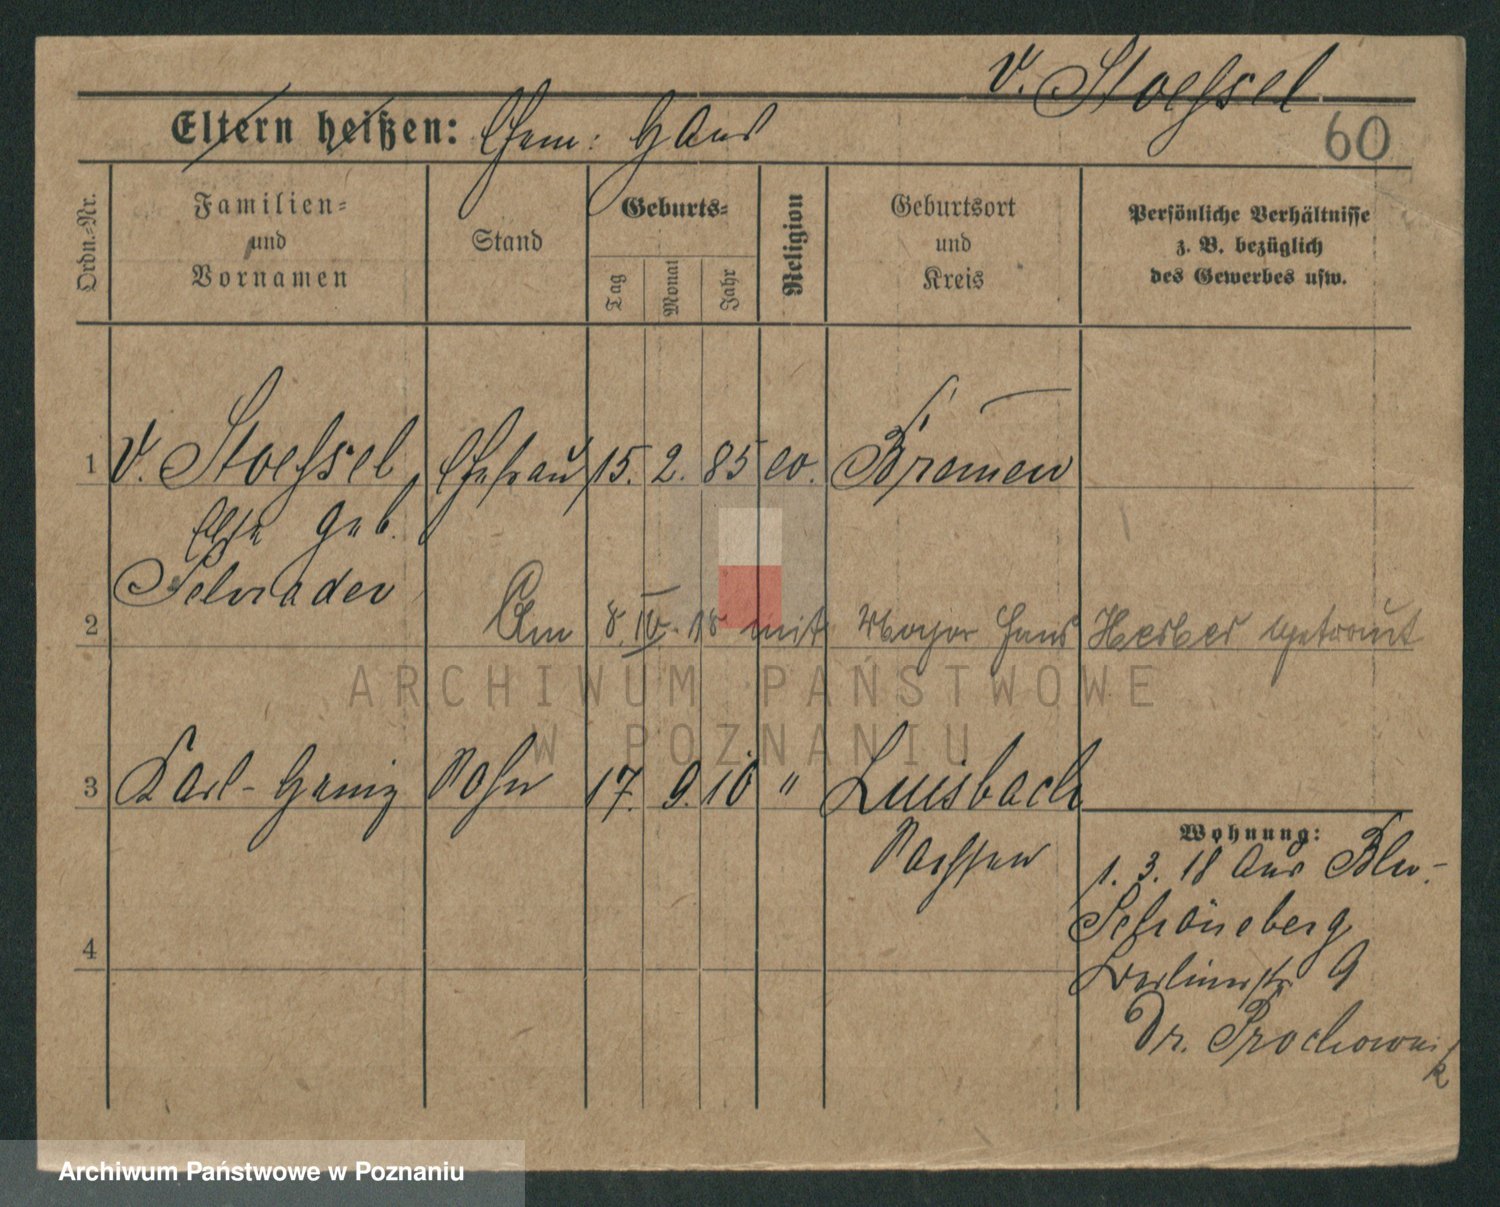 v. Stoessel
Eltern heißen: Ehem: Hans
60
Ordn.-Nr.
Familien-
und
Vornamen
Stand
Geburts-
Tag
Monat
Jahr
Religion
Geburtsort
und
Kreis
Persönliche Verhältnisse
z. B. bezüglich
des Gewerbes usw.
1 v. Stoessel, Ehefrau 15. 2. 85 ev. Bremen
Else geb.
Schrader
2 Am 8. IV. 18 mit Major Hans getraut
3 Karl-Heinz Sohn 17. 9. 10 " Luisbach
Sachsen
Wohnung:
1. 3. 18 aus Bln.-
Schöneberg
Berlinerstr 9
Dr. Prochownik
4
ARCHIWUM PAŃSTWOWE
W POZNANIU
Archiwum Państwowe w Poznaniu